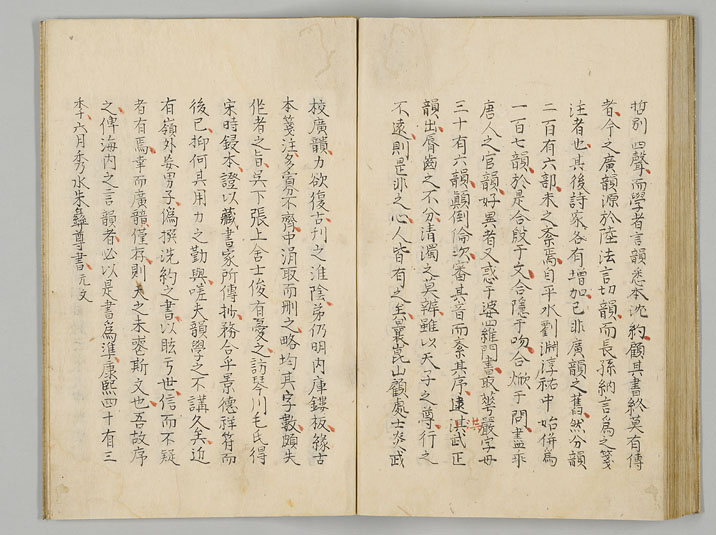 哲別四聲而學者言韻悉本沈約顧其書終莫有傳
者今之廣韻源於陸法言切韻而長孫納言為之箋
注者也其後詩家各有增加已非廣韻之舊然分韻
二百有六部未之紊焉自平水劉淵淳祐中始併為
一百七韻於是合殷于文合隱于吻合焮于問盡乖
唐人之官韻好異者又惑于婆羅門書取華嚴字母
三十有六韻顛倒倫次審其音而紊其序逮洪武正
韻出唇齒之不分清濁之莫辨雖以天子之尊行之
不遠則是非之心人皆有之矣曩崑山顧處士炎武
校廣韻力欲復古刊之淮陰弟仍明內庫鏤板緣古
本箋注多寡不齊中涓取而刪之略均其字數頗失
作者之旨吳下張上舍士俊有憂之訪琴川毛氏得
宋時鋟本證以藏書家所傳抄務合乎景德祥符而
後已抑何其用力之勤與嗟夫韻學之不講久矣近
有嶺外妄男子偽撰沈約之書以眩于世信而不疑
者有焉幸而廣韻僅存則天之未喪斯文也吾故序
之俾海內之言韻者必以是書為準康熙四十有三
年六月秀水朱彝尊書元文